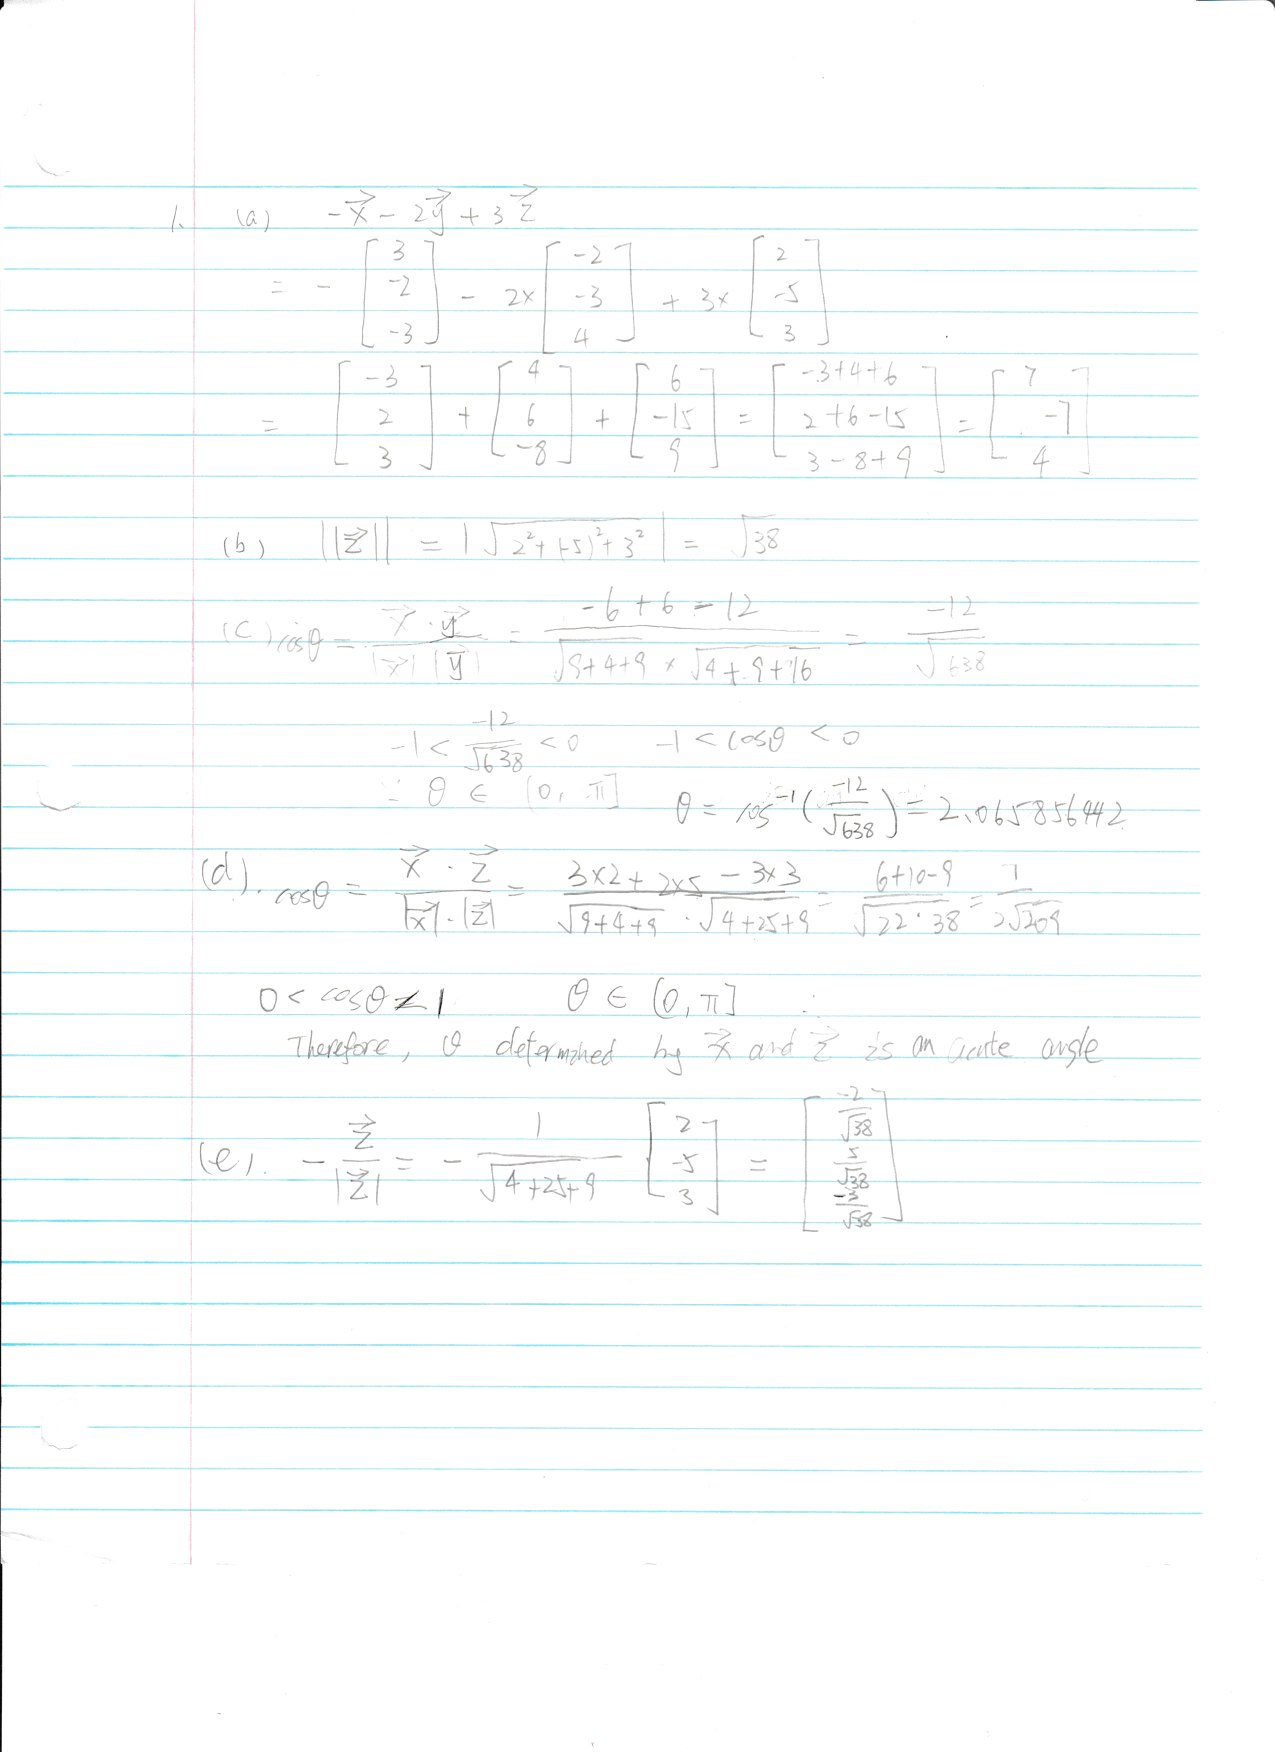 1. (a) -x⃗ - 2y⃗ + 3z⃗
= - [3 -2 -3] - 2× [-2 -3 4] + 3× [2 -5 3]
= [-3 2 3] + [4 6 -8] + [6 -15 9] = [-3+4+6 2+6-15 3-8+9] = [7 -7 4]
(b) ||z⃗|| = |√(2²+(-5)²+3²)| = √38
(c) cosθ = (x⃗·y⃗)/(|x⃗| |y⃗|) = (-6+6-12)/(√(9+4+9) × √(4+9+16)) = -12/√638
-1 < -12/√638 < 0 -1 < cosθ < 0
∵ θ ∈ (0, π] θ = cos⁻¹(-12/√638) = 2.065856442
(d). cosθ = (x⃗·z⃗)/(|x⃗|·|z⃗|) = (3×2+2×5-3×3)/(√(9+4+9)·√(4+25+9)) = (6+10-9)/√(22·38) = 7/(2√209)
0 < cosθ < 1 θ ∈ (0, π] ∴
Therefore, θ determined by x⃗ and z⃗ is an acute angle
(e). - z⃗/|z⃗| = - 1/√(4+25+9) [2 -5 3] = [-2/√38 5/√38 -3/√38]